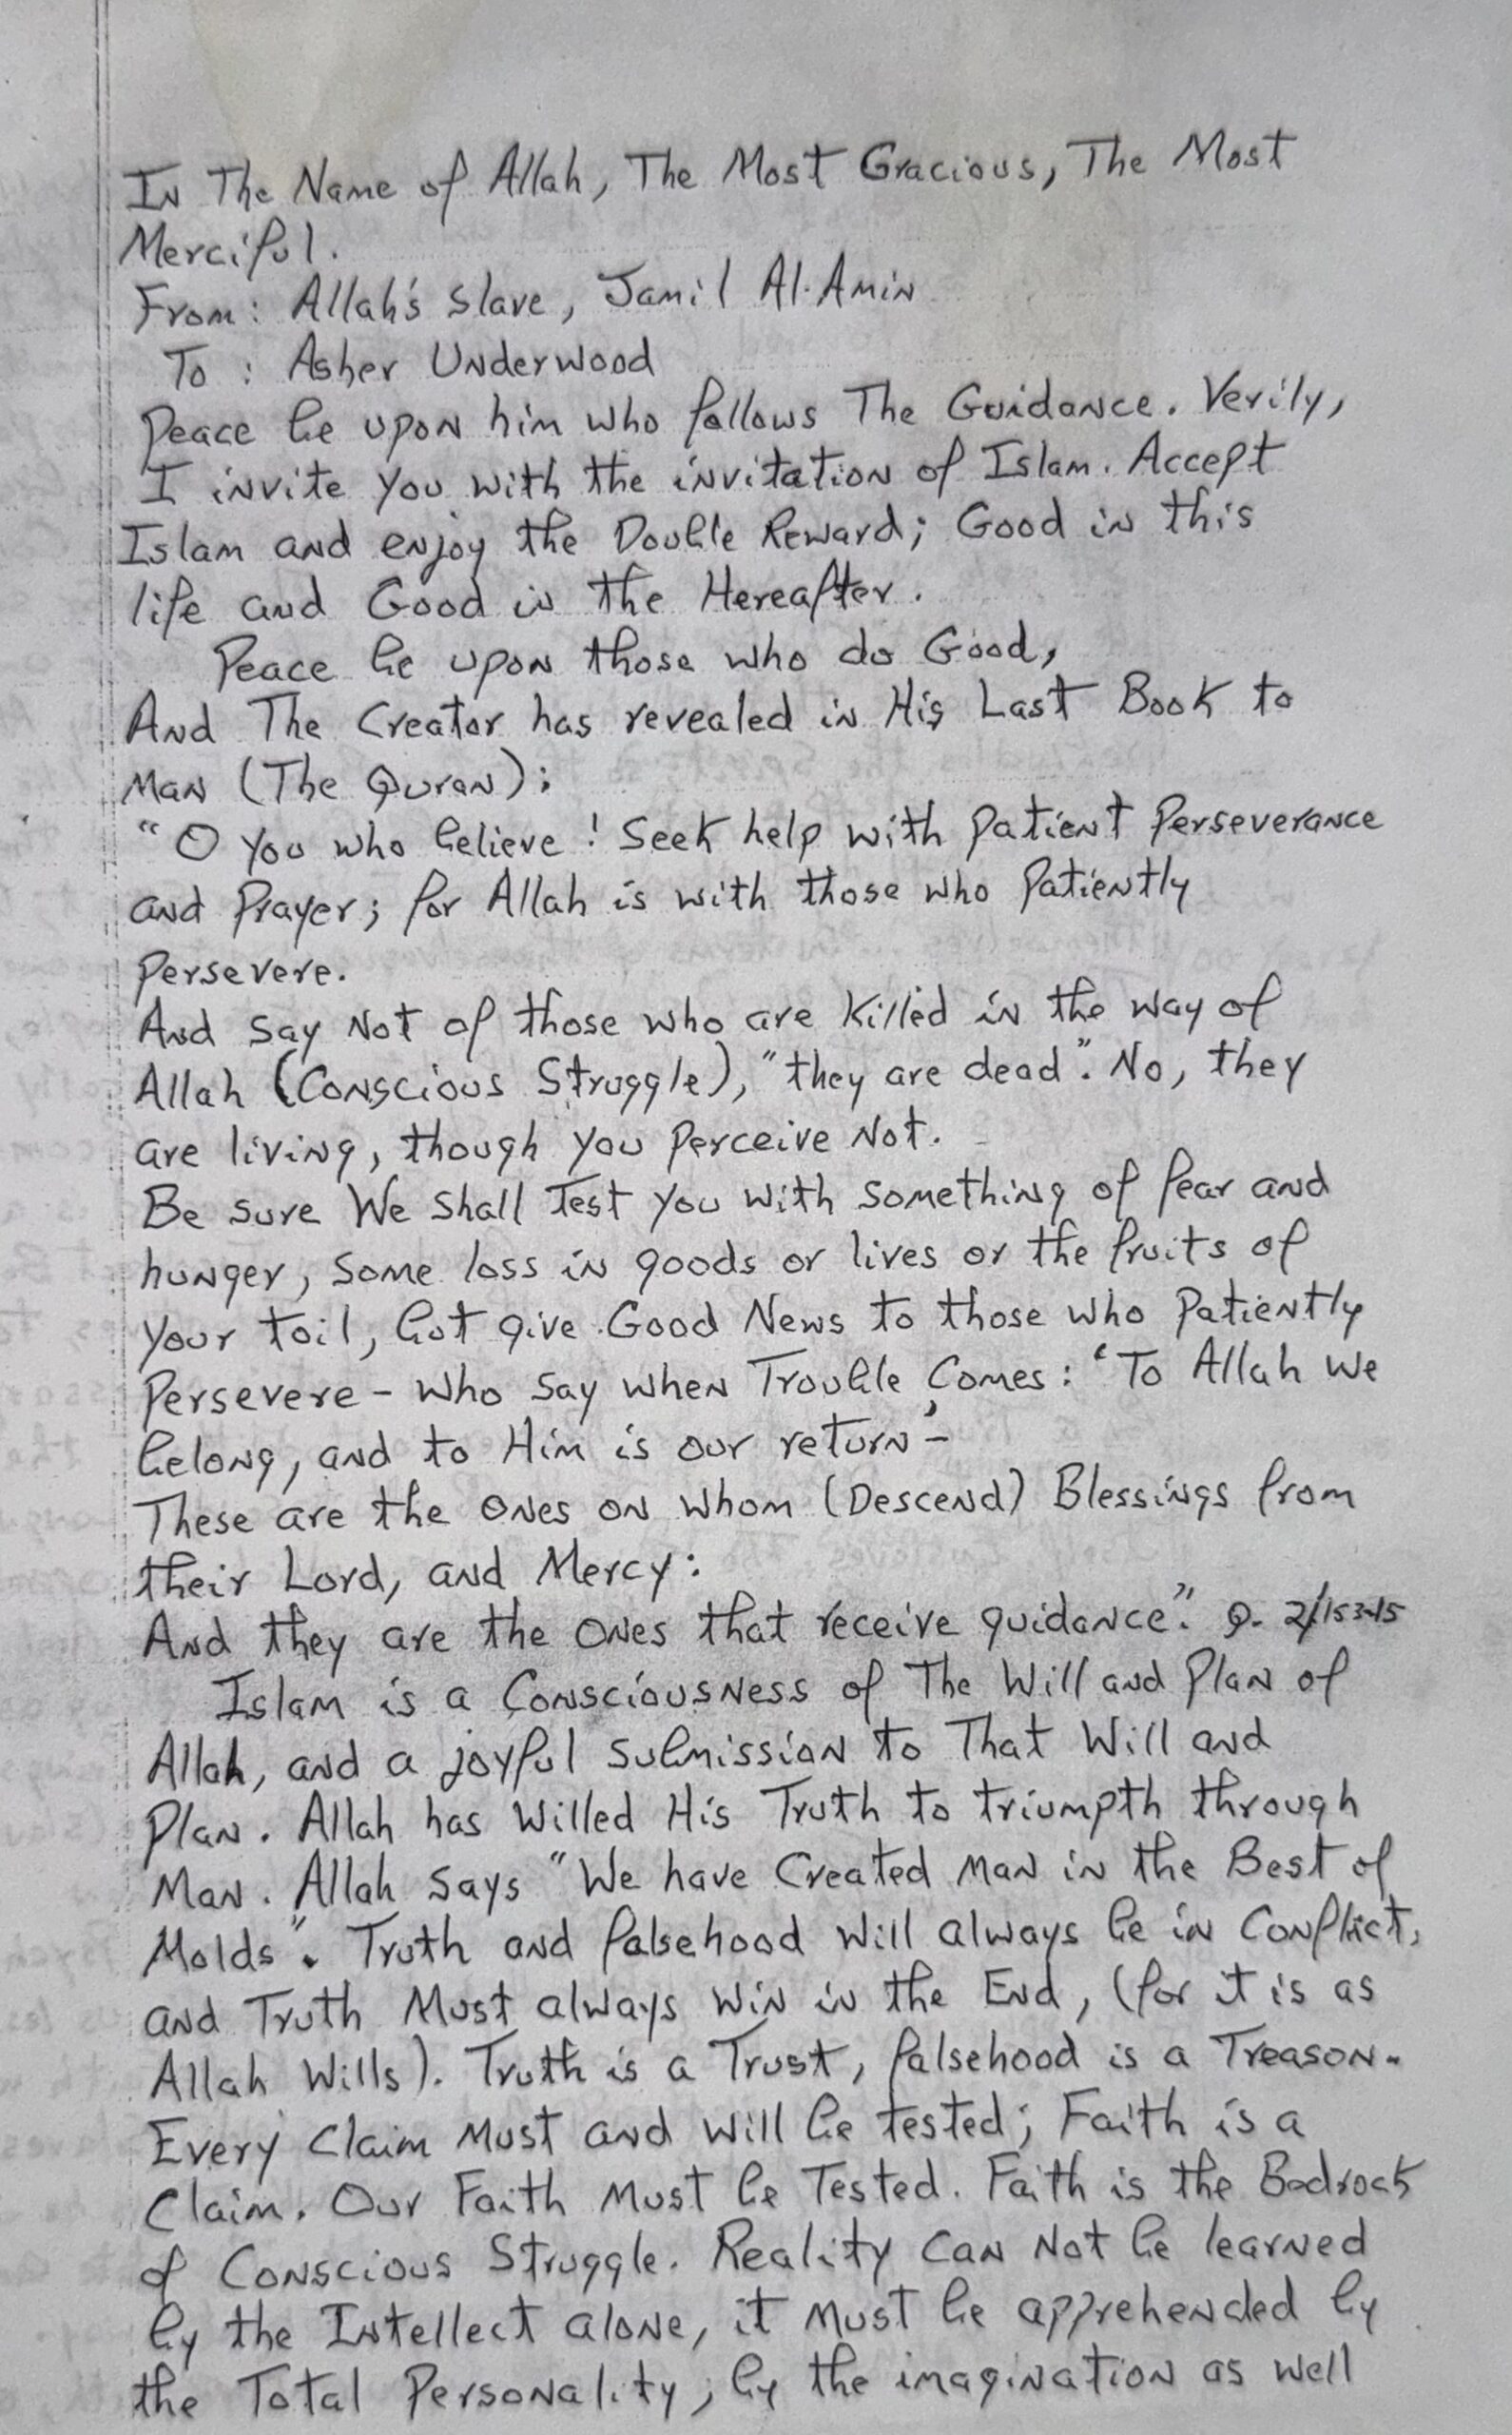 In The Name of Allah, The Most Gracious, The Most
Merciful.
From: Allah's slave, Jamil Al-Amin
To : Asher Underwood
Peace be upon him who follows The Guidance. Verily,
I invite you with the invitation of Islam. Accept
Islam and enjoy the Double Reward; Good in this
life and Good in the Hereafter.
Peace be upon those who do Good,
And The Creator has revealed in His Last Book to
Man (The Quran):
"O you who believe! Seek help with patient Perseverance
and Prayer; for Allah is with those who Patiently
Persevere.
And say Not of those who are killed in the way of
Allah (Conscious Struggle), "they are dead". No, they
are living, though you perceive Not.
Be sure We shall Test you with something of fear and
hunger, some loss in goods or lives or the fruits of
your toil, but give Good News to those who Patiently
Persevere - who say when Trouble Comes: 'To Allah we
belong, and to Him is our return' -
These are the ones on whom (Descend) Blessings from
their Lord, and Mercy:
And they are the ones that receive guidance". Q. 2/153-15
Islam is a Consciousness of The Will and Plan of
Allah, and a joyful submission to That Will and
Plan. Allah has Willed His Truth to triumpth through
Man. Allah says "We have Created Man in the Best of
Molds". Truth and falsehood will always be in Conflict,
and Truth Must always win in the End, (for it is as
Allah Wills). Truth is a Trust, falsehood is a Treason.
Every Claim Must and will be tested; Faith is a
Claim. Our Faith Must be Tested. Faith is the Bedrock
of Conscious Struggle. Reality Can Not be learned
by the Intellect alone, it must be apprehended by
the Total Personality; by the imagination as well